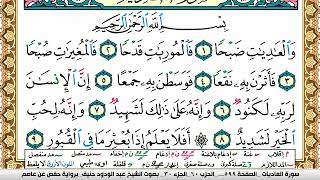 بِسْمِ اللَّهِ الرَّحْمَٰنِ الرَّحِيمِ
وَالْعَادِيَاتِ ضَبْحًا ١ فَالْمُورِيَاتِ قَدْحًا ٢ فَالْمُغِيرَاتِ صُبْحًا
٣ فَأَثَرْنَ بِهِ نَقْعًا ٤ فَوَسَطْنَ بِهِ جَمْعًا ٥ إِنَّ الْإِنْسَانَ
لِرَبِّهِ لَكَنُودٌ ٦ وَإِنَّهُ عَلَىٰ ذَٰلِكَ لَشَهِيدٌ ٧ وَإِنَّهُ لِحُبِّ
الْخَيْرِ لَشَدِيدٌ ٨ أَفَلَا يَعْلَمُ إِذَا بُعْثِرَ مَا فِي الْقُبُورِ ٩
سورة العاديات الصفحة ٥٩٩ الحزب ٦٠ الجزء ٣٠ بصوت الشيخ عبد الودود حنيف برواية حفص عن عاصم